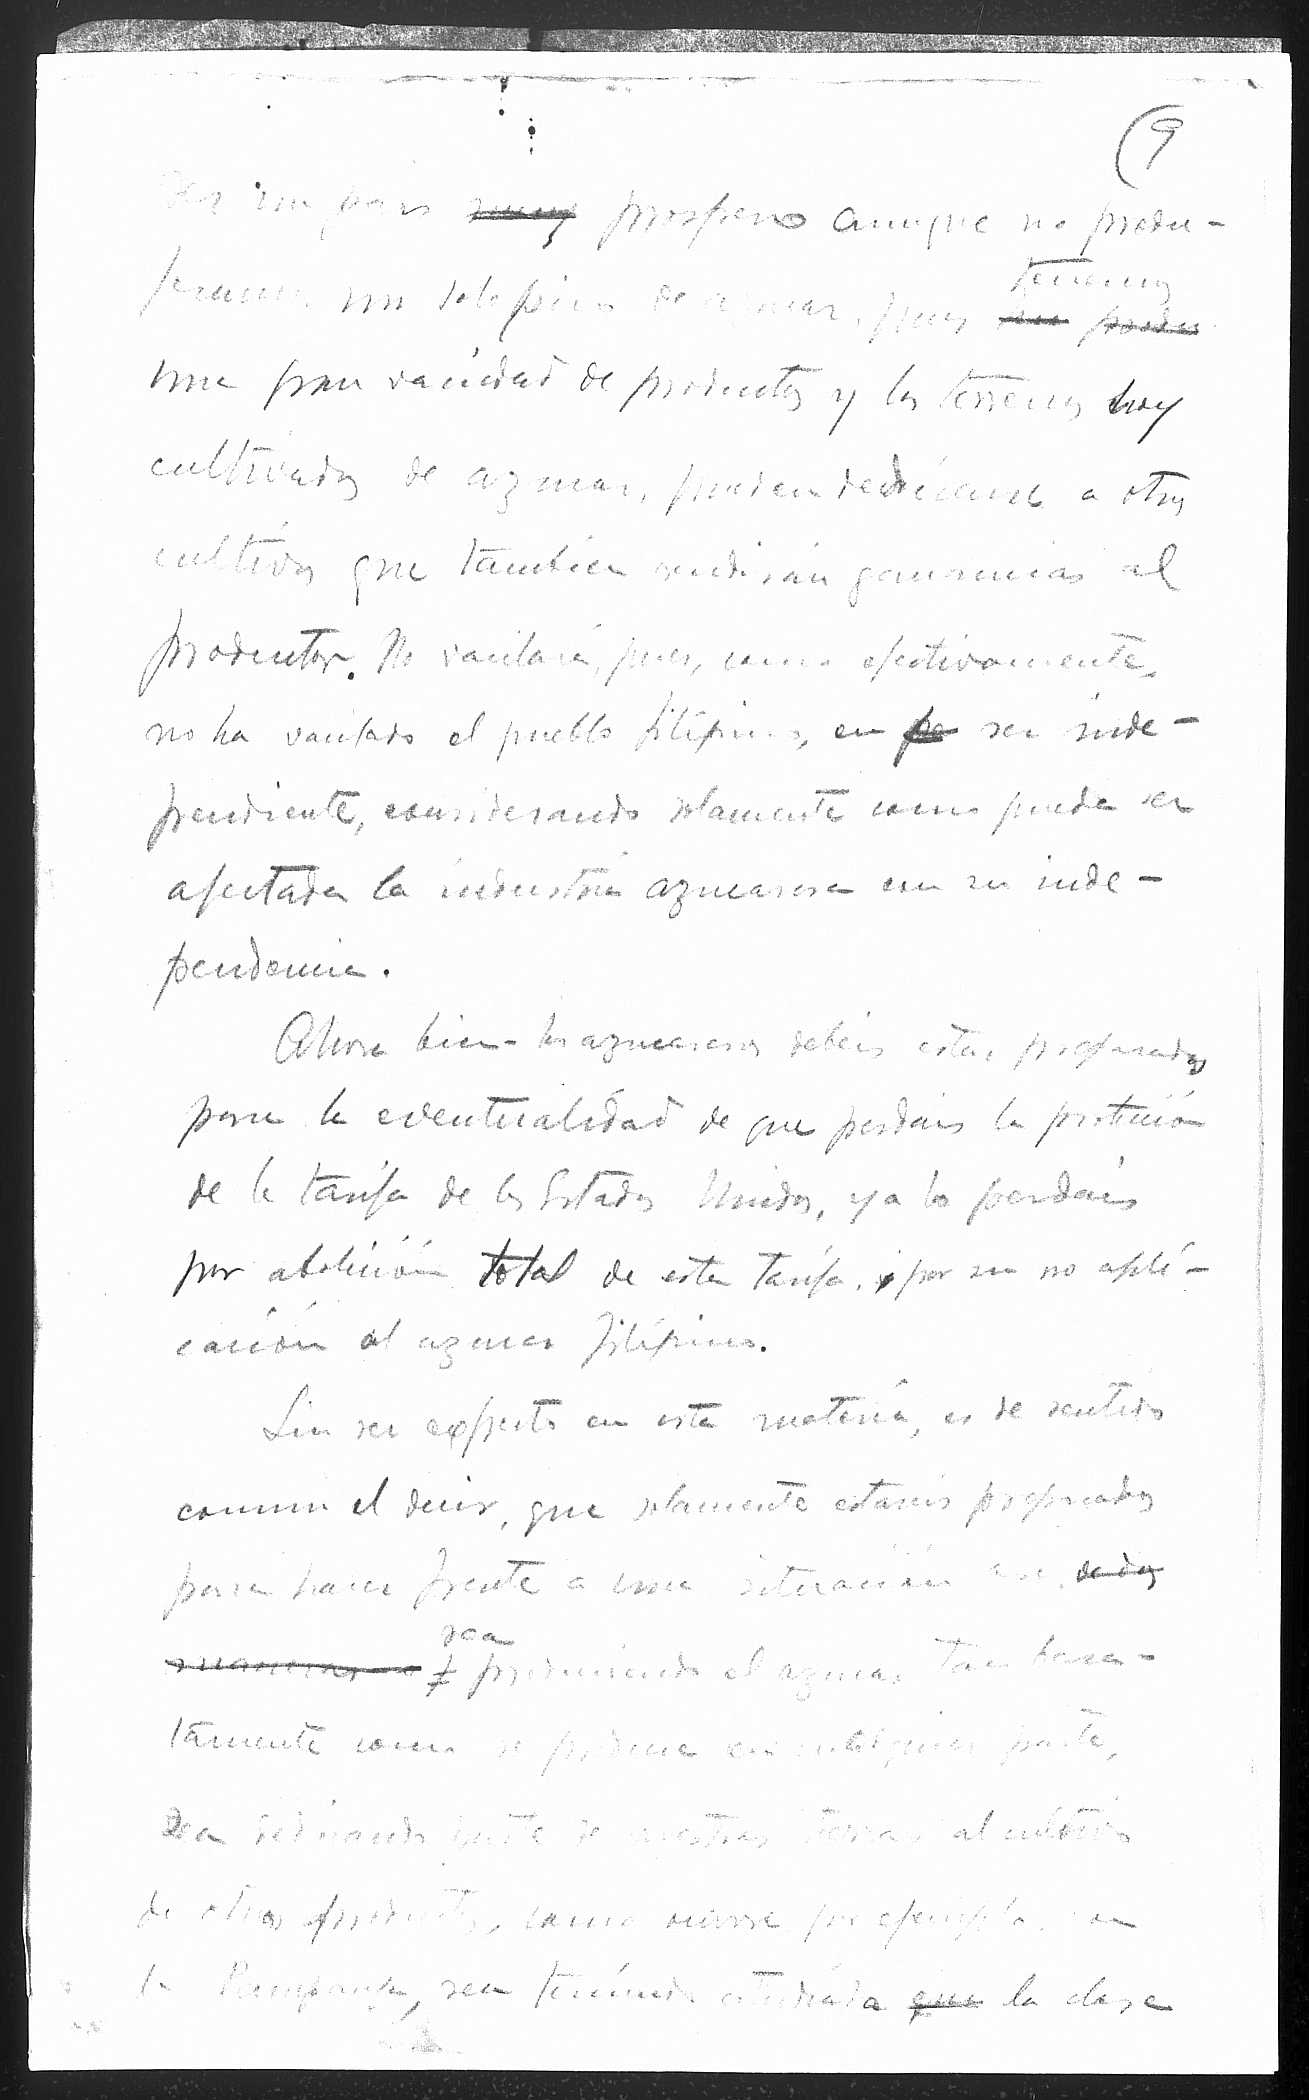 (9
ser un pais muy prospero aunque no produ-
jeramos un solo pico de azucar, pues tenemos
una gran variedad de productos y los terrenos hoy
cultivados de azucar, pueden dedicarse a otros
cultivos que tambien rendirán ganancias al
productor. No vacilará, pues, como efectivamente,
no ha vacilado el pueblo filipino, en ser inde-
pendiente, considerando solamente como puede ser
afectada la industria azucarera con su inde-
pendencia.
Ahora bien- los azucareros debéis estar preparados
para la eventualidad de que perdais la protección
de la tarifa de los Estados Unidos, ya la perdais
por abolición total de esta tarifa, o por su no apli-
cación al azucar filipino.
Sin ser experto en esta materia, es de sentido
comun el decir, que solamente estareis preparados
para hacer frente a una situación asi, de dos
maneras o sea produciendo el azucar tan bara-
tamente como se produce en cualquier parte,
sea dedicando parte de vuestras tierras al cultivo
de otros productos, como ocurre por ejemplo, con
la Pampanga, sea teniendo estudiada que la clase